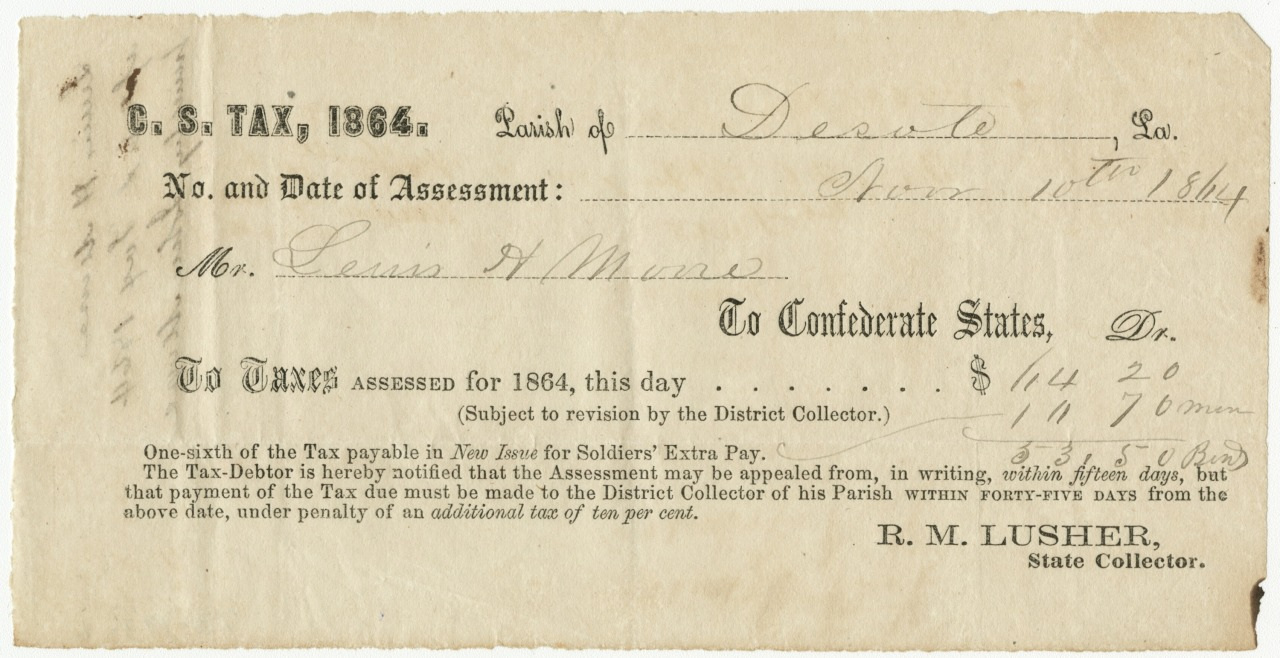 C. S. TAX, 1864. Parish of Desoto, La.
No. and Date of Assessment: Novr 10th 1864
Mr. Lewis H Moore
To Confederate States, Dr.
To Taxes ASSESSED for 1864, this day . . . . . . . $ 64 20
(Subject to revision by the District Collector.) 10 70
One-sixth of the Tax payable in New Issue for Soldiers' Extra Pay. 53 50
The Tax-Debtor is hereby notified that the Assessment may be appealed from, in writing, within fifteen days, but
that payment of the Tax due must be made to the District Collector of his Parish WITHIN FORTY-FIVE DAYS from the
above date, under penalty of an additional tax of ten per cent.
R. M. LUSHER,
State Collector.